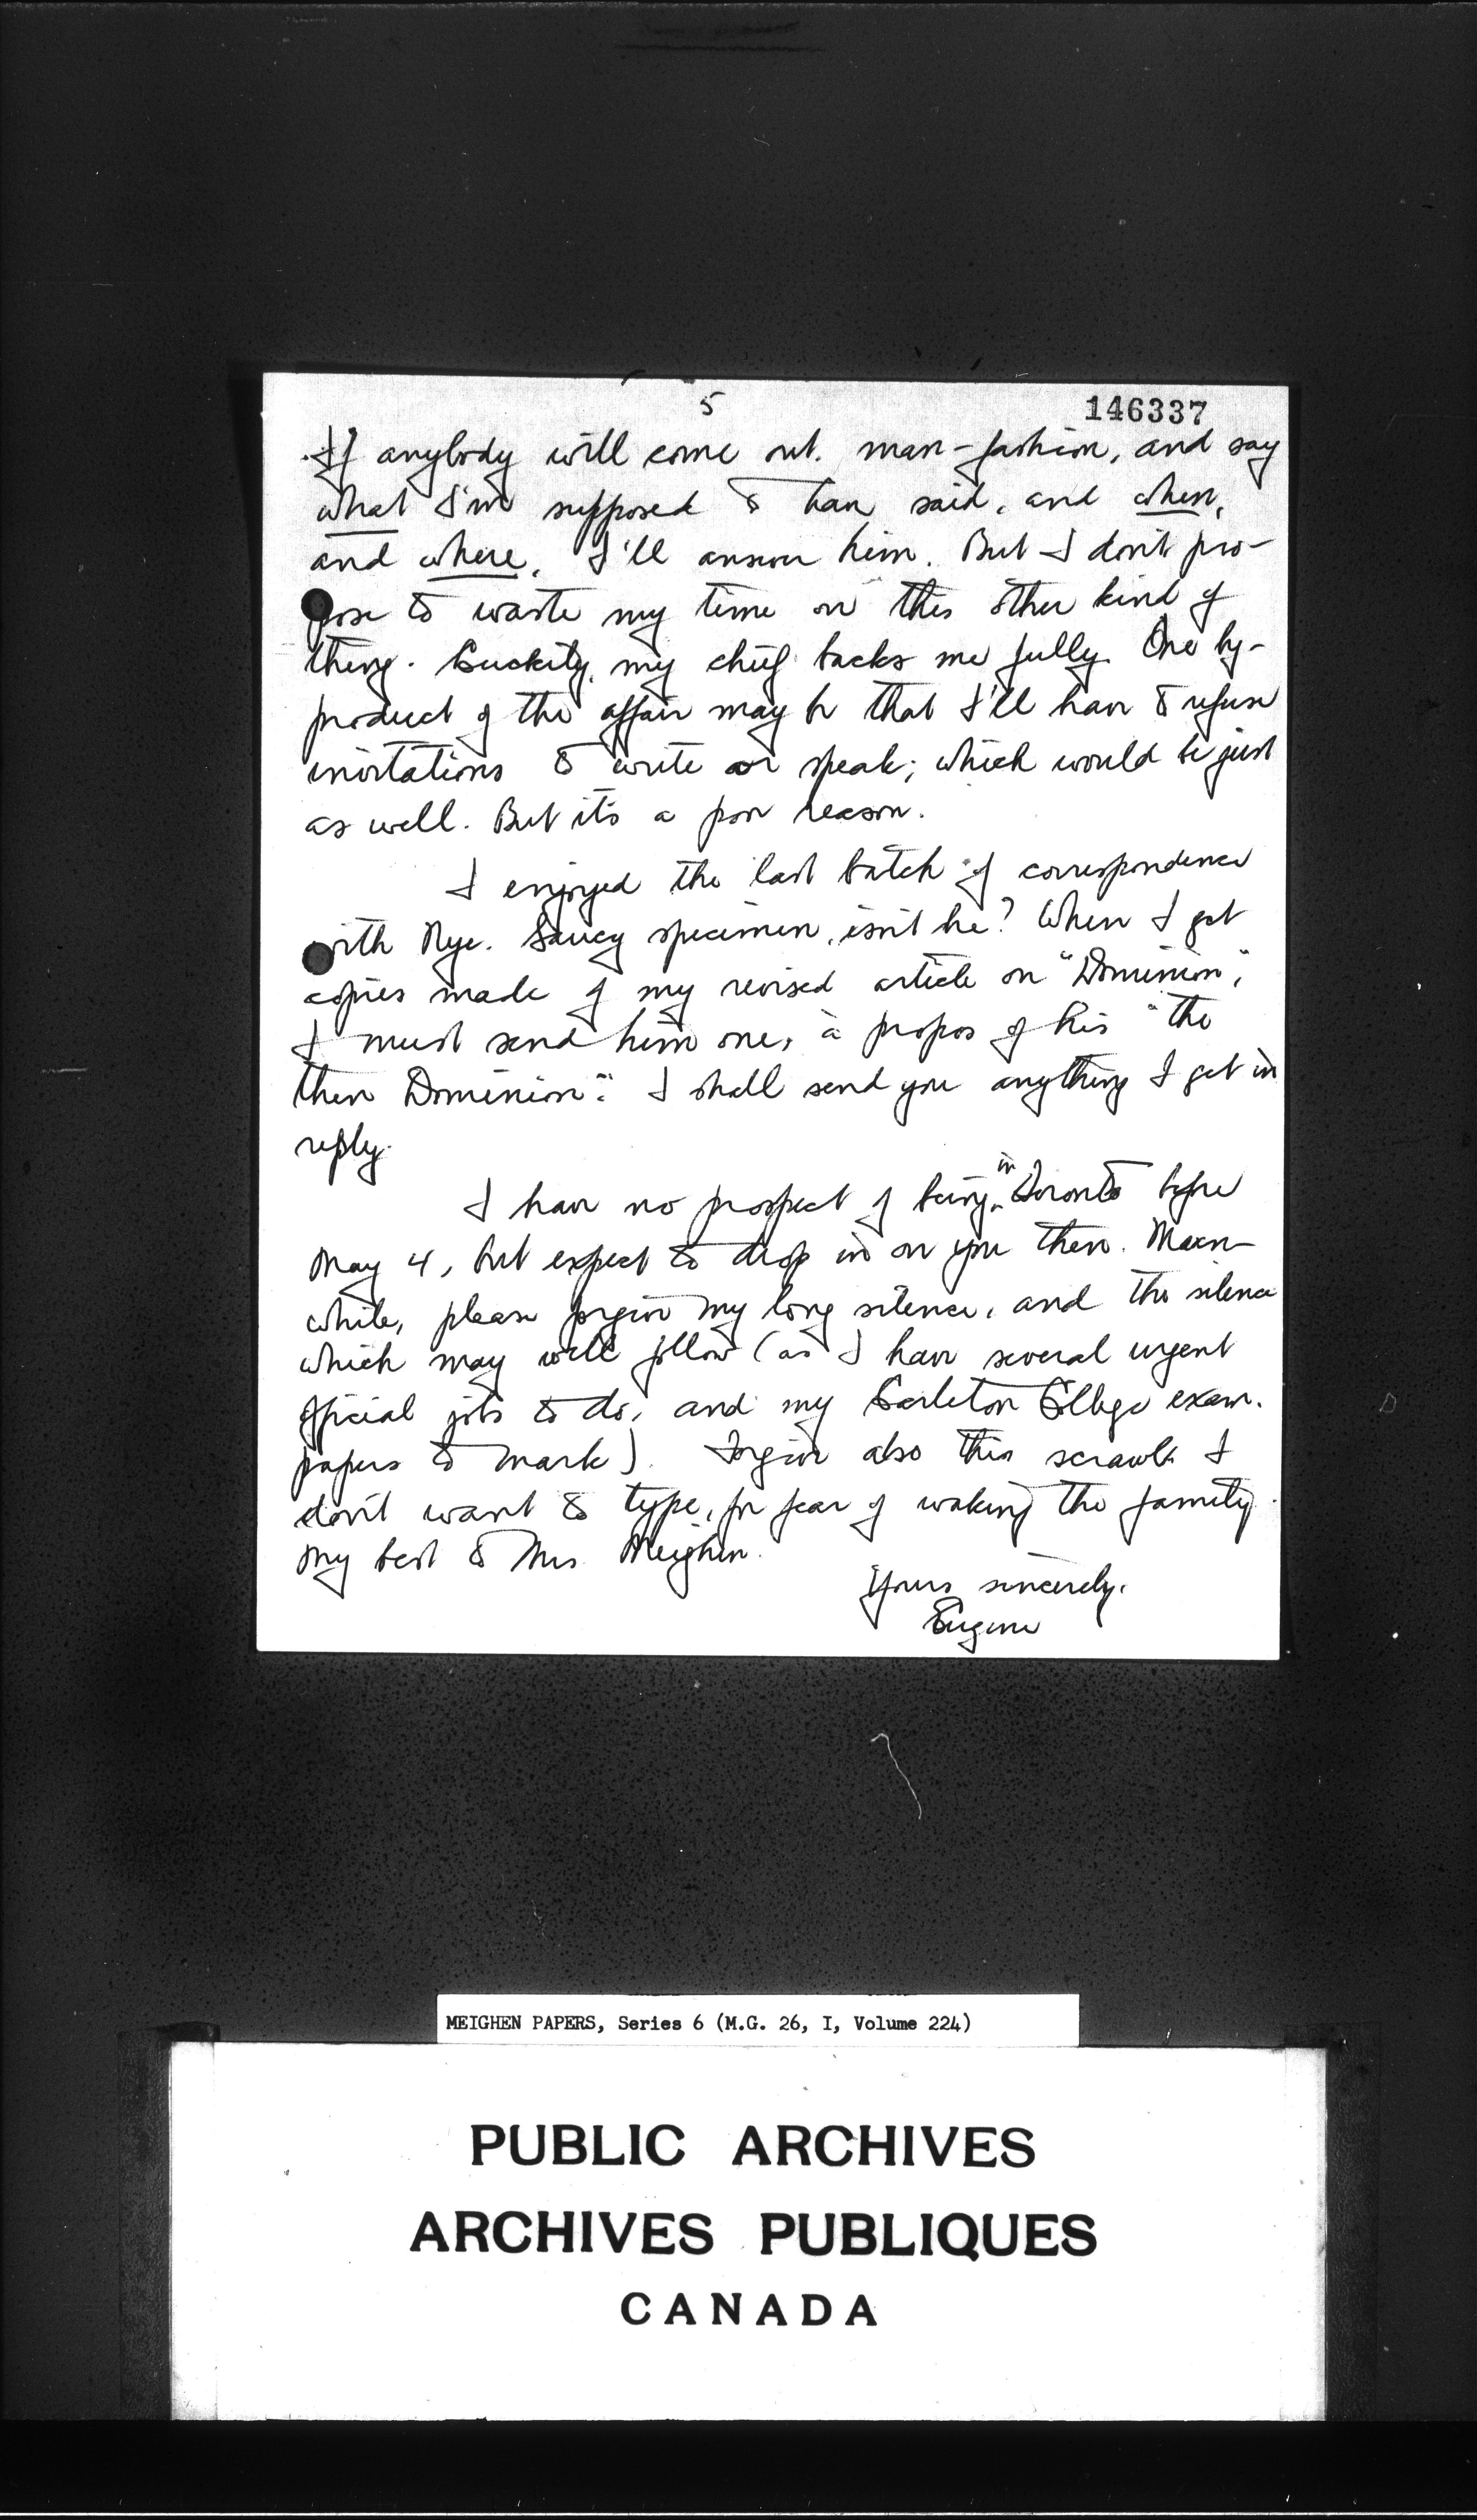 5
146337
If anybody will come out, man-fashion, and say
what I'm supposed to have said, and when,
and where, I'll answer him. But I don't pro-
pose to waste my time on this other kind of
thing. Luckily, my chief backs me fully. One by-
product of the affair may be that I'll have to refuse
invitations to write or speak; which would be just
as well. But it's a poor reason.
I enjoyed the last batch of correspondence
with Nye. Saucy specimen, isn't he? When I get
copies made of my revised article on "Dominion",
I must send him one, à propos of his "the
then Dominion". I shall send you anything I get in
reply.
I have no prospect of being in Toronto before
May 4, but expect to drop in on you then. Mean-
while, please forgive my long silence, and the silence
which may well follow (as I have several urgent
official jobs to do, and my Carleton College exam.
papers to mark). Forgive also this scrawl. I
don't want to type, for fear of waking the family.
My best to Mrs. Meighen.
Yours sincerely,
Eugene
MEIGHEN PAPERS, Series 6 (M.G. 26, I, Volume 224)
PUBLIC ARCHIVES
ARCHIVES PUBLIQUES
CANADA